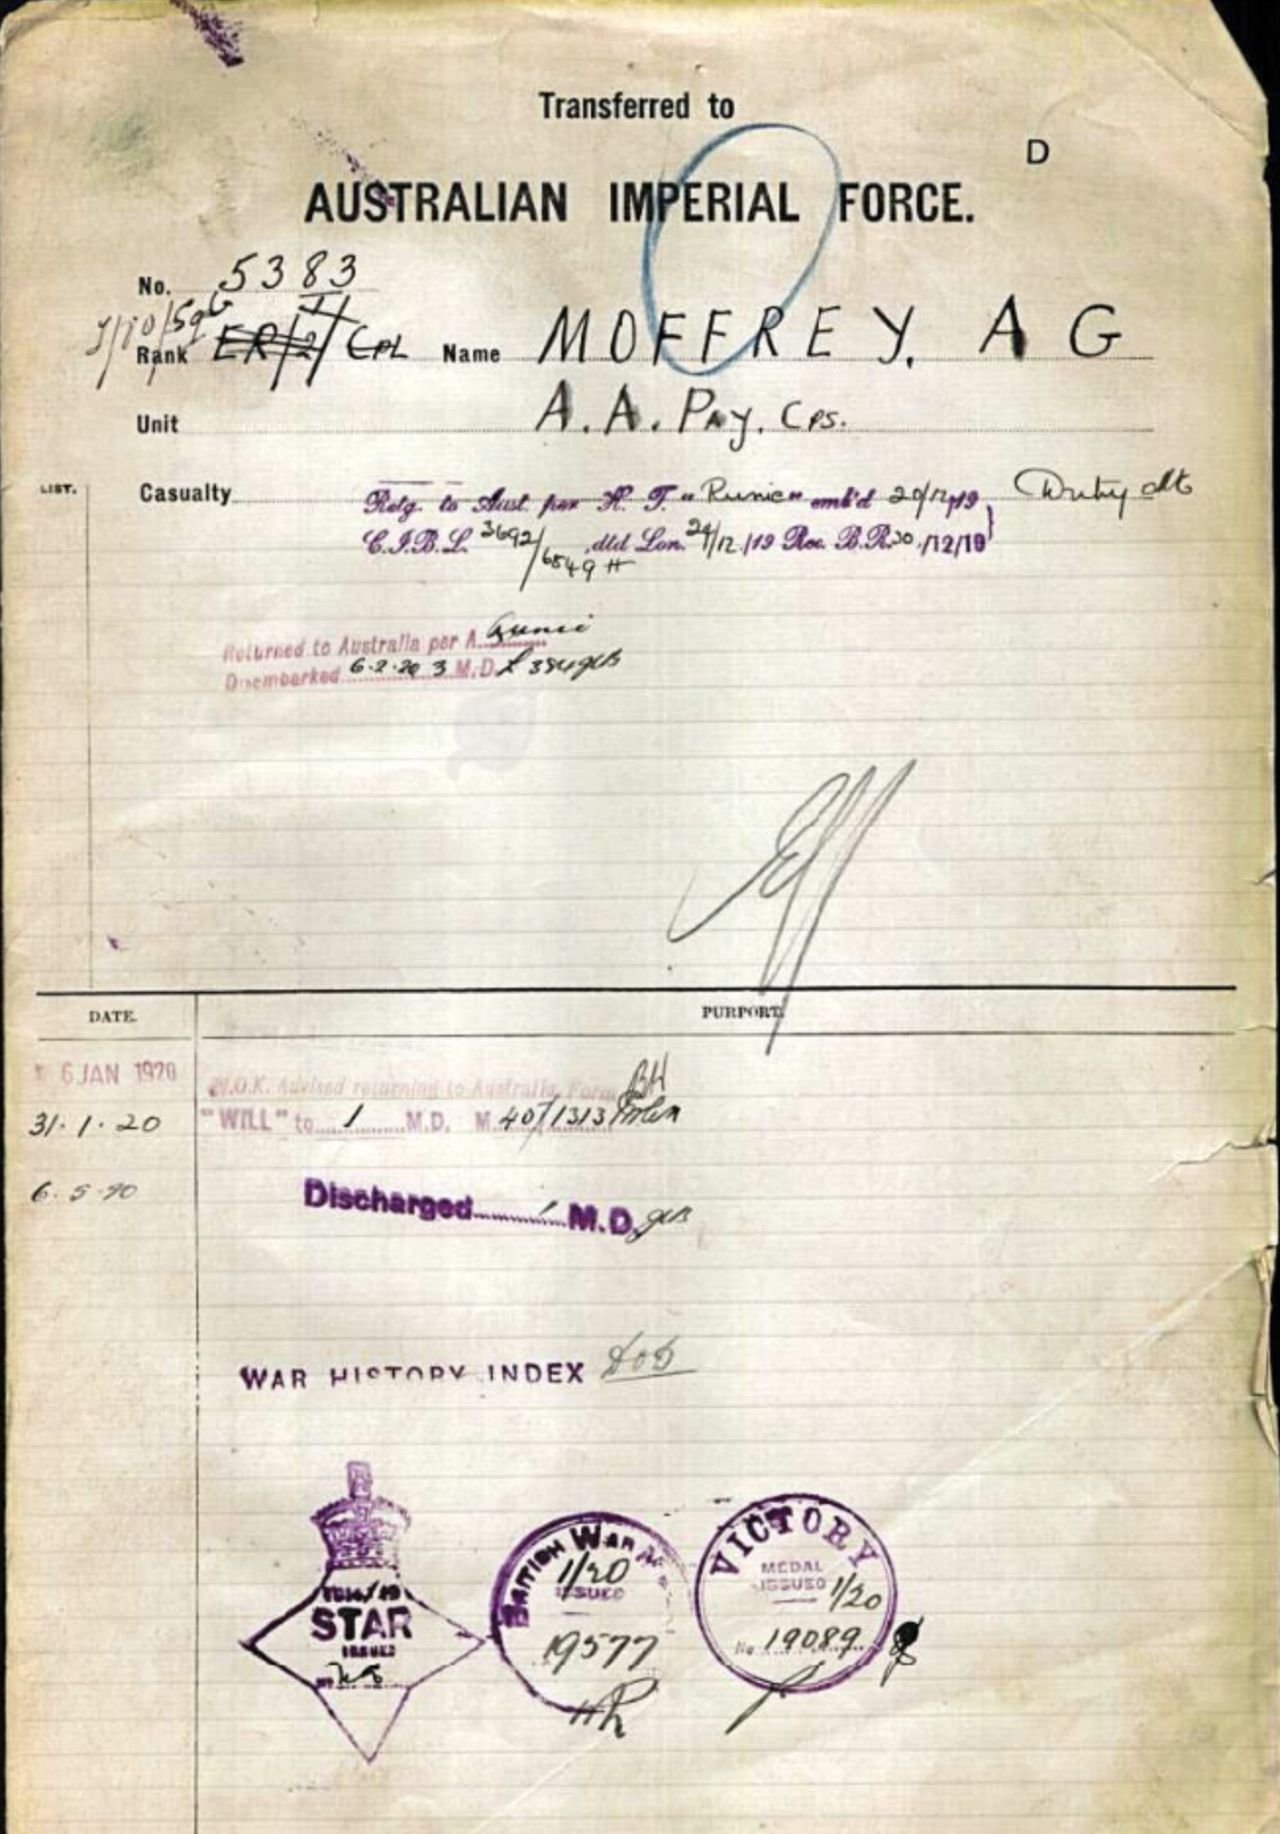 Transferred to
D
AUSTRALIAN IMPERIAL FORCE.
No. 5383
Rank Cpl Name MOFFREY. A G
Unit A. A. Pay. Cps.
LIST. Casualty Retg. to Aust. per H. T. "Runic" emb'd 20/12/19
C.I.B.L. 3692/6549 H dtd Lon. 24/12/19 Rec. B.R. 30/12/19
Returned to Australia per A.
Disembarked 6.2.20 3 M.D.
DATE. PURPORT.
6 JAN 1920 N.O.K. Advised returning to Australia, Form
31.1.20 "WILL" to 1 M.D. M 40/1313
6.5.20 Discharged 1 M.D.
WAR HISTORY INDEX
STAR
ISSUED
BRITISH WAR
1/20
ISSUED
19577
VICTORY
MEDAL
ISSUED 1/20
No 19089